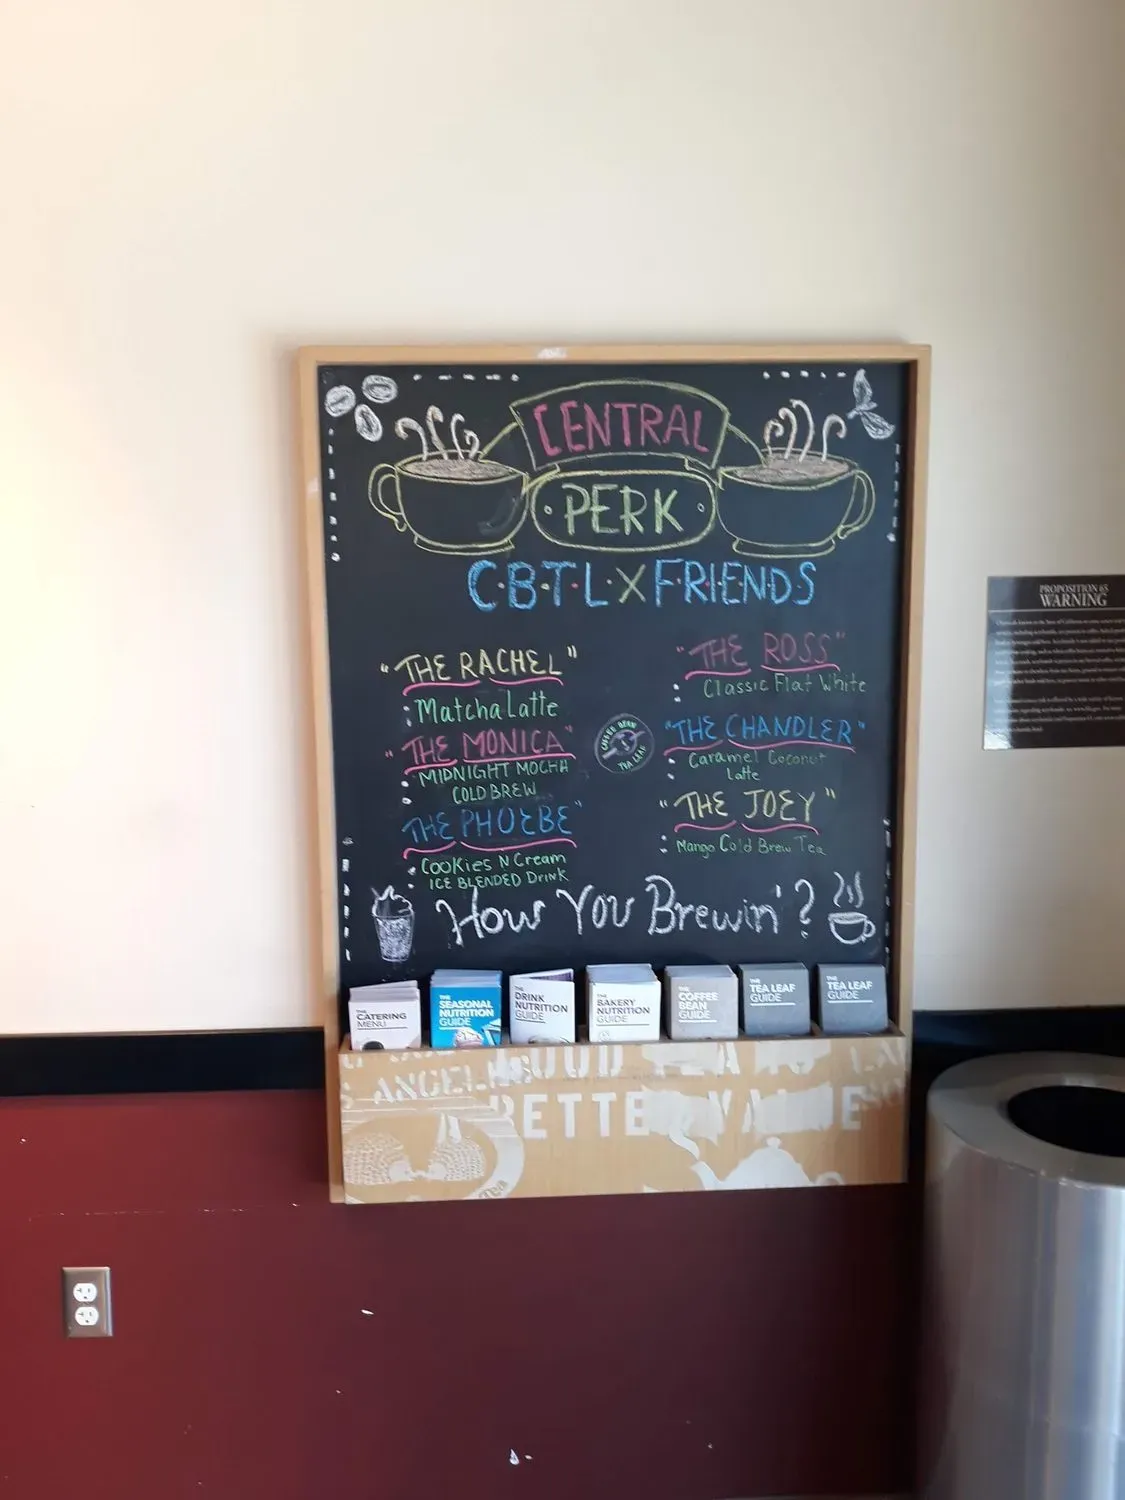 CENTRAL
PERK
C·B·T·L·X F·R·I·E·N·D·S
"THE RACHEL"
: Matcha Latte
"THE MONICA"
: MIDNIGHT MOCHA
COLD BREW
"THE PHOEBE"
: COOKIES N Cream
ICE BLENDED Drink
"THE ROSS"
: Classic Flat White
"THE CHANDLER"
: Caramel Coconut
Latte
"THE JOEY"
: Mango Cold Brew Tea
COFFEE BEAN
TEA LEAF
How You Brewin'?
THE
CATERING
MENU
THE
SEASONAL
NUTRITION
GUIDE
THE
DRINK
NUTRITION
GUIDE
THE
BAKERY
NUTRITION
GUIDE
THE
COFFEE
BEAN
GUIDE
THE
TEA LEAF
GUIDE
THE
TEA LEAF
GUIDE
PROPOSITION 65
WARNING